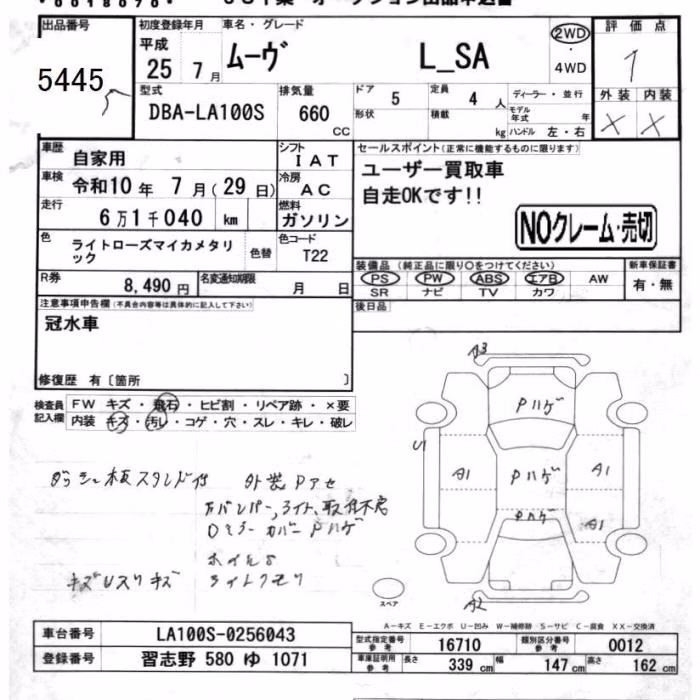 出品番号
5445
初度登録年月
平成
25 7 月
車名・グレード
ムーヴ L_SA
2WD
・
4WD
評価点
1
外装 内装
× ×
型式
DBA-LA100S
排気量
660
CC
ドア
5
定員
4 人
形状
積載
kg
ディーラー・並行
モデル年式 年
ハンドル 左・右
車歴
自家用
シフト
IAT
車検
令和10 年 7 月(29 日)
冷房
AC
走行
6万1千040 km
燃料
ガソリン
色
ライトローズマイカメタリック
色替
色コード
T22
R券
8,490 円
名変通知期限
月 日
セールスポイント(正常に機能するものに限ります)
ユーザー買取車
自走OKです!!
NOクレーム・売切
装備品(純正品に限り○をつけてください)
PS PW ABS エアB AW
SR ナビ TV カワ
新車保証書
有・無
後日品
注意事項申告欄(不具合内容等は具体的に記入して下さい)
冠水車
修復歴 有〔箇所 〕
検査員記入欄
FW キズ・飛石・ヒビ割・リペア跡・×要
内装 キズ・汚レ・コゲ・穴・スレ・キレ・破レ
A3
Pハゲ
U1
A1
Pハゲ
A1
Pハゲ
A1
A2
スペア
ダッシュ板スタンド付
外装Pアセ
Fバンパー,ライト,取付不良
Dミラーカバー Pハゲ
ライトクモリ
A-キズ E-エクボ U-凹み W-補修跡 S-サビ C-腐食 XX-交換済
車台番号
LA100S-0256043
登録番号
習志野 580 ゆ 1071
型式指定番号
参考
16710
類別区分番号
参考
0012
車庫証明用
参考
長さ
339 cm
幅
147 cm
高さ
162 cm